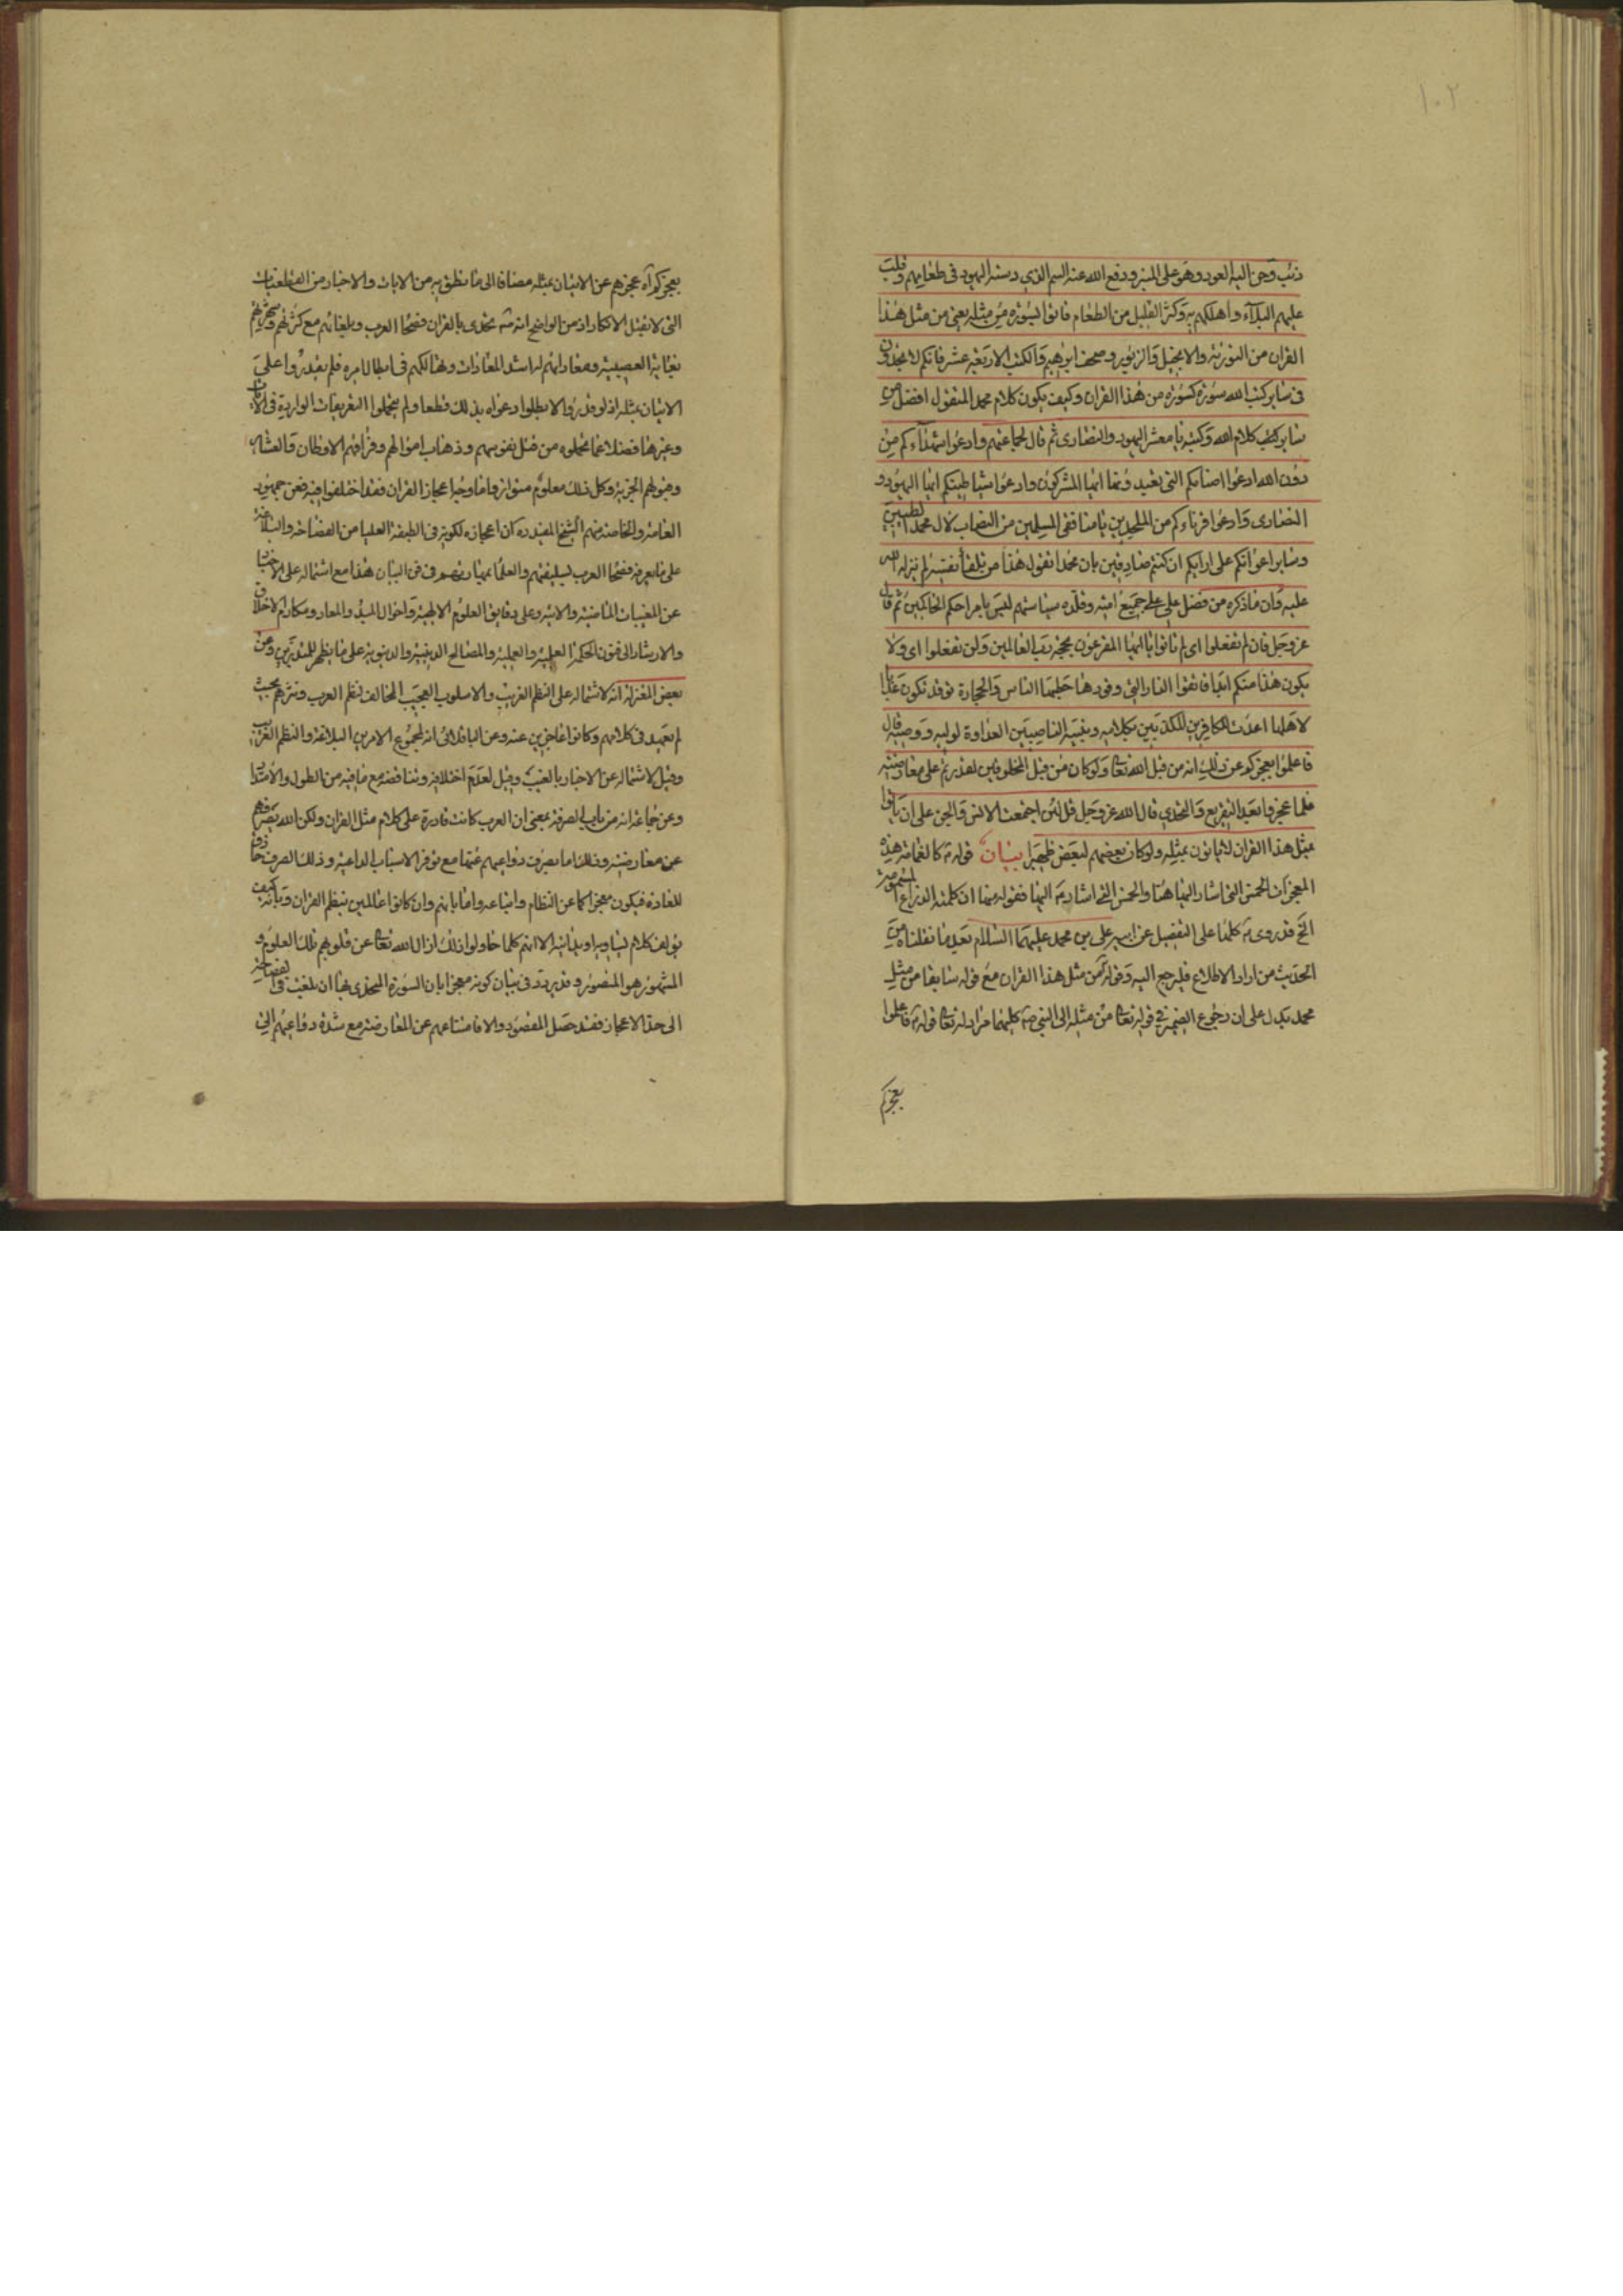 ١٠٢
ذئب وحن اليه العود وهو على المنبر ودفع الله عنه السم الذي دسته اليهود في طعامهم وقلب
عليهم البلاء واهلكهم به وكثر القليل من الطعام فاتوا بسورة من مثله يعني من مثل هذا
القران من التورية والانجيل والزبور وصحف ابرهيم والكتب الاربعة عشر فانكم لا تجدون
في ساير كتب الله سورة كسورة من هذا القران وكيف يكون كلام محمد المتقول افضل من
ساير كتب كلام الله وكتبه يا معشر اليهود والنصارى ثم قال لجماعتهم وادعوا شهداءكم من
دون الله ادعوا اصنامكم التي تعبدونها ايها المشركون وادعوا شياطينكم ايها اليهود و
النصارى وادعوا قرناءكم من الملحدين يا منافقي المسلمين من النصاب لال محمد الطيبين
وساير اعوانكم على ارائكم ان كنتم صادقين بان محمدا تقول هذا من تلقاء نفسه لم ينزله الله
عليه وان ما ذكره من فضل علي على جميع امته وقلده سياستهم ليس بامر احكم الحاكمين ثم قال
عز وجل فان لم تفعلوا اي لم تاتوا يا ايها المقرعون بحجة رب العالمين ولن تفعلوا اي ولا
يكون هذا منكم ابدا فاتقوا النار التي وقودها حطبها الناس والحجارة توقد تكون عذابا
لاهلها اعدت للكافرين المكذبين بكلامه ونبيه الناصبين العداوة لوليه ووصيه قال
فاعلموا بعجزكم عن ذلك انه من قبل الله تعالى ولو كان من قبل المخلوقين لقدرتم على معارضته
فلما عجزوا بعد التقريع والتحدي قال الله عز وجل قل لئن اجتمعت الانس والجن على ان ياتوا
بمثل هذا القران لا ياتون بمثله ولو كان بعضهم لبعض ظهيرا بيان قوله كالغمامة هذه
المعجزات الخمس التي اشار اليها هنا والخمس التي اشار اليها فقوله منها ان كلمته الذراع المسمومة
الخ قد روى كلها على التفصيل عن ابيه علي بن محمد عليهما السلام بعد ما نقلناه من
الحديث من اراد الاطلاع فليرجع اليه وقوله من مثل هذا القران مع قوله سابقا من مثل
محمد يدل على ان رجوع الضمير في قوله تعالى من مثله الى النبي كليهما مراد له تعالى قوله فاعلموا
بعجزكم
بعجزكم اه عجزهم عن الاتيان بمثله مضافا الى ما نطق به من الايات والاخبار من القطعيات
التي لا تقبل الانكار اذ من الواضح انه تحدى بالقران فصحا العرب وبلغائهم مع كثرتهم وشهرتهم
بغاية العصبية ومعاداتهم له اشد المعادات وتهالكهم في ابطال امره فلم يقدروا على
الاتيان بمثله اذ لو قدروا لاتوا ولابطلوا دعواه بذلك قطعا ولم يتحملوا التقريعات الواردة في الايات
وغيرها فضلا عما تحملوه من قتل نفوسهم وذهاب اموالهم وفراقهم الاوطان والعشاير
وقبولهم الجزية وكل ذلك معلوم متواتر واما وجه اعجاز القران فقد اختلفوا فيه فعن جمهور
العامة والخاصة منهم الشيخ المفيد ره ان اعجازه لكونه في الطبقة العليا من الفصاحة والبلاغة
على ما يعرفه فصحا العرب بسليقتهم والعلماء بمهارتهم في فن البيان هذا مع اشتماله على الاخبار
عن المغيبات الماضية والاتية وعلى دقايق العلوم الالهية واحوال المبدء والمعاد ومكارم الاخلاق
والارشاد الى فنون الحكمة العلمية والعملية والمصالح الدينية والدنيوية على ما يظهر للمتدبرين وعن
بعض المعتزلة انه لاشتماله على النظم الغريب والاسلوب العجيب المخالف لنظم العرب ونثرهم بحيث
لم يعهد في كلامهم وكانوا عاجزين عنه وعن الباقلاني انه لمجموع الامرين البلاغة والنظم الغريب
وقيل لاشتماله عن الاخبار بالغيب وقيل لعدم اختلافه وتناقضه مع ما فيه من الطول والامتداد
وعن جماعة انه من باب الصرفة بمعنى ان العرب كانت قادرة على كلام مثل القران ولكن الله يصرفهم
عن معارضته وذلك اما بصرف دواعيهم عنها مع توفر الاسباب الداعية وذلك الصرف خارق
للعادة فيكون معجزا كما عن النظام واتباعه واما بانهم وان كانوا عالمين بنظم القران وبانه كيف
يؤلف كلام يساويه او يدانيه الا انهم كلما حاولوا ذلك ازال الله تعالى عن قلوبهم تلك العلوم و
المشهور هو المنصور وقد يردد في بيان كونه معجزا بان السورة المتحدى بها ان بلغت في الفصاحة
الى حد الاعجاز فقد حصل المقصود والا فامتناعهم عن المعارضة مع شدة دواعيهم الى